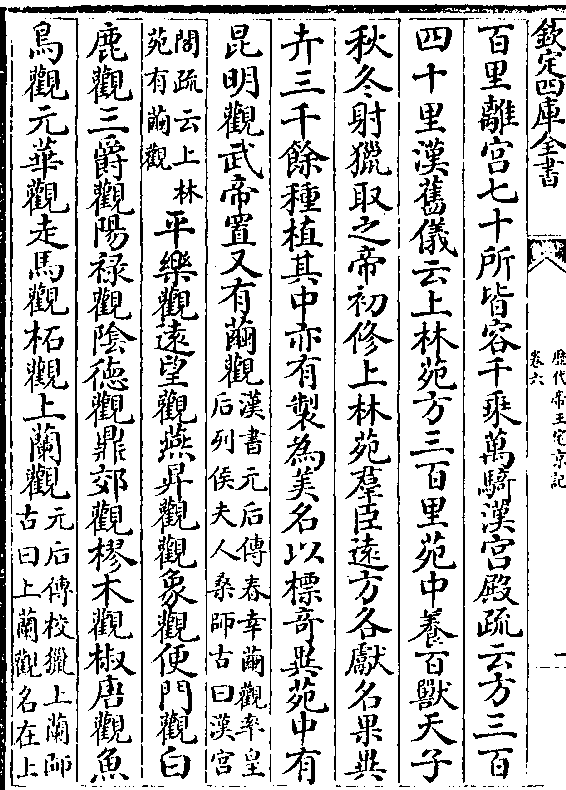 欽定四庫全書
歷代帝王宅京記
卷六
一
百里離宮七十所皆容千乘萬騎漢宮殿疏云方三百
四十里漢舊儀云上林苑方三百里苑中養百獸天子
秋冬射獵取之帝初修上林苑羣臣逺方各獻名果異
卉三千餘種植其中亦有製為美名以標奇異苑中有
昆明觀武帝置又有繭觀漢書元后傳春幸繭觀率皇
后列侯夫人桑師古曰漢宮
閣疏云上林
苑有繭觀
平樂觀逺望觀燕昇觀觀象觀便門觀白
鹿觀三爵觀陽禄觀陰德觀鼎郊觀樛木觀椒唐觀魚
鳥觀元華觀走馬觀柘觀上蘭觀元后傳校獵上蘭師
古曰上蘭觀名在上